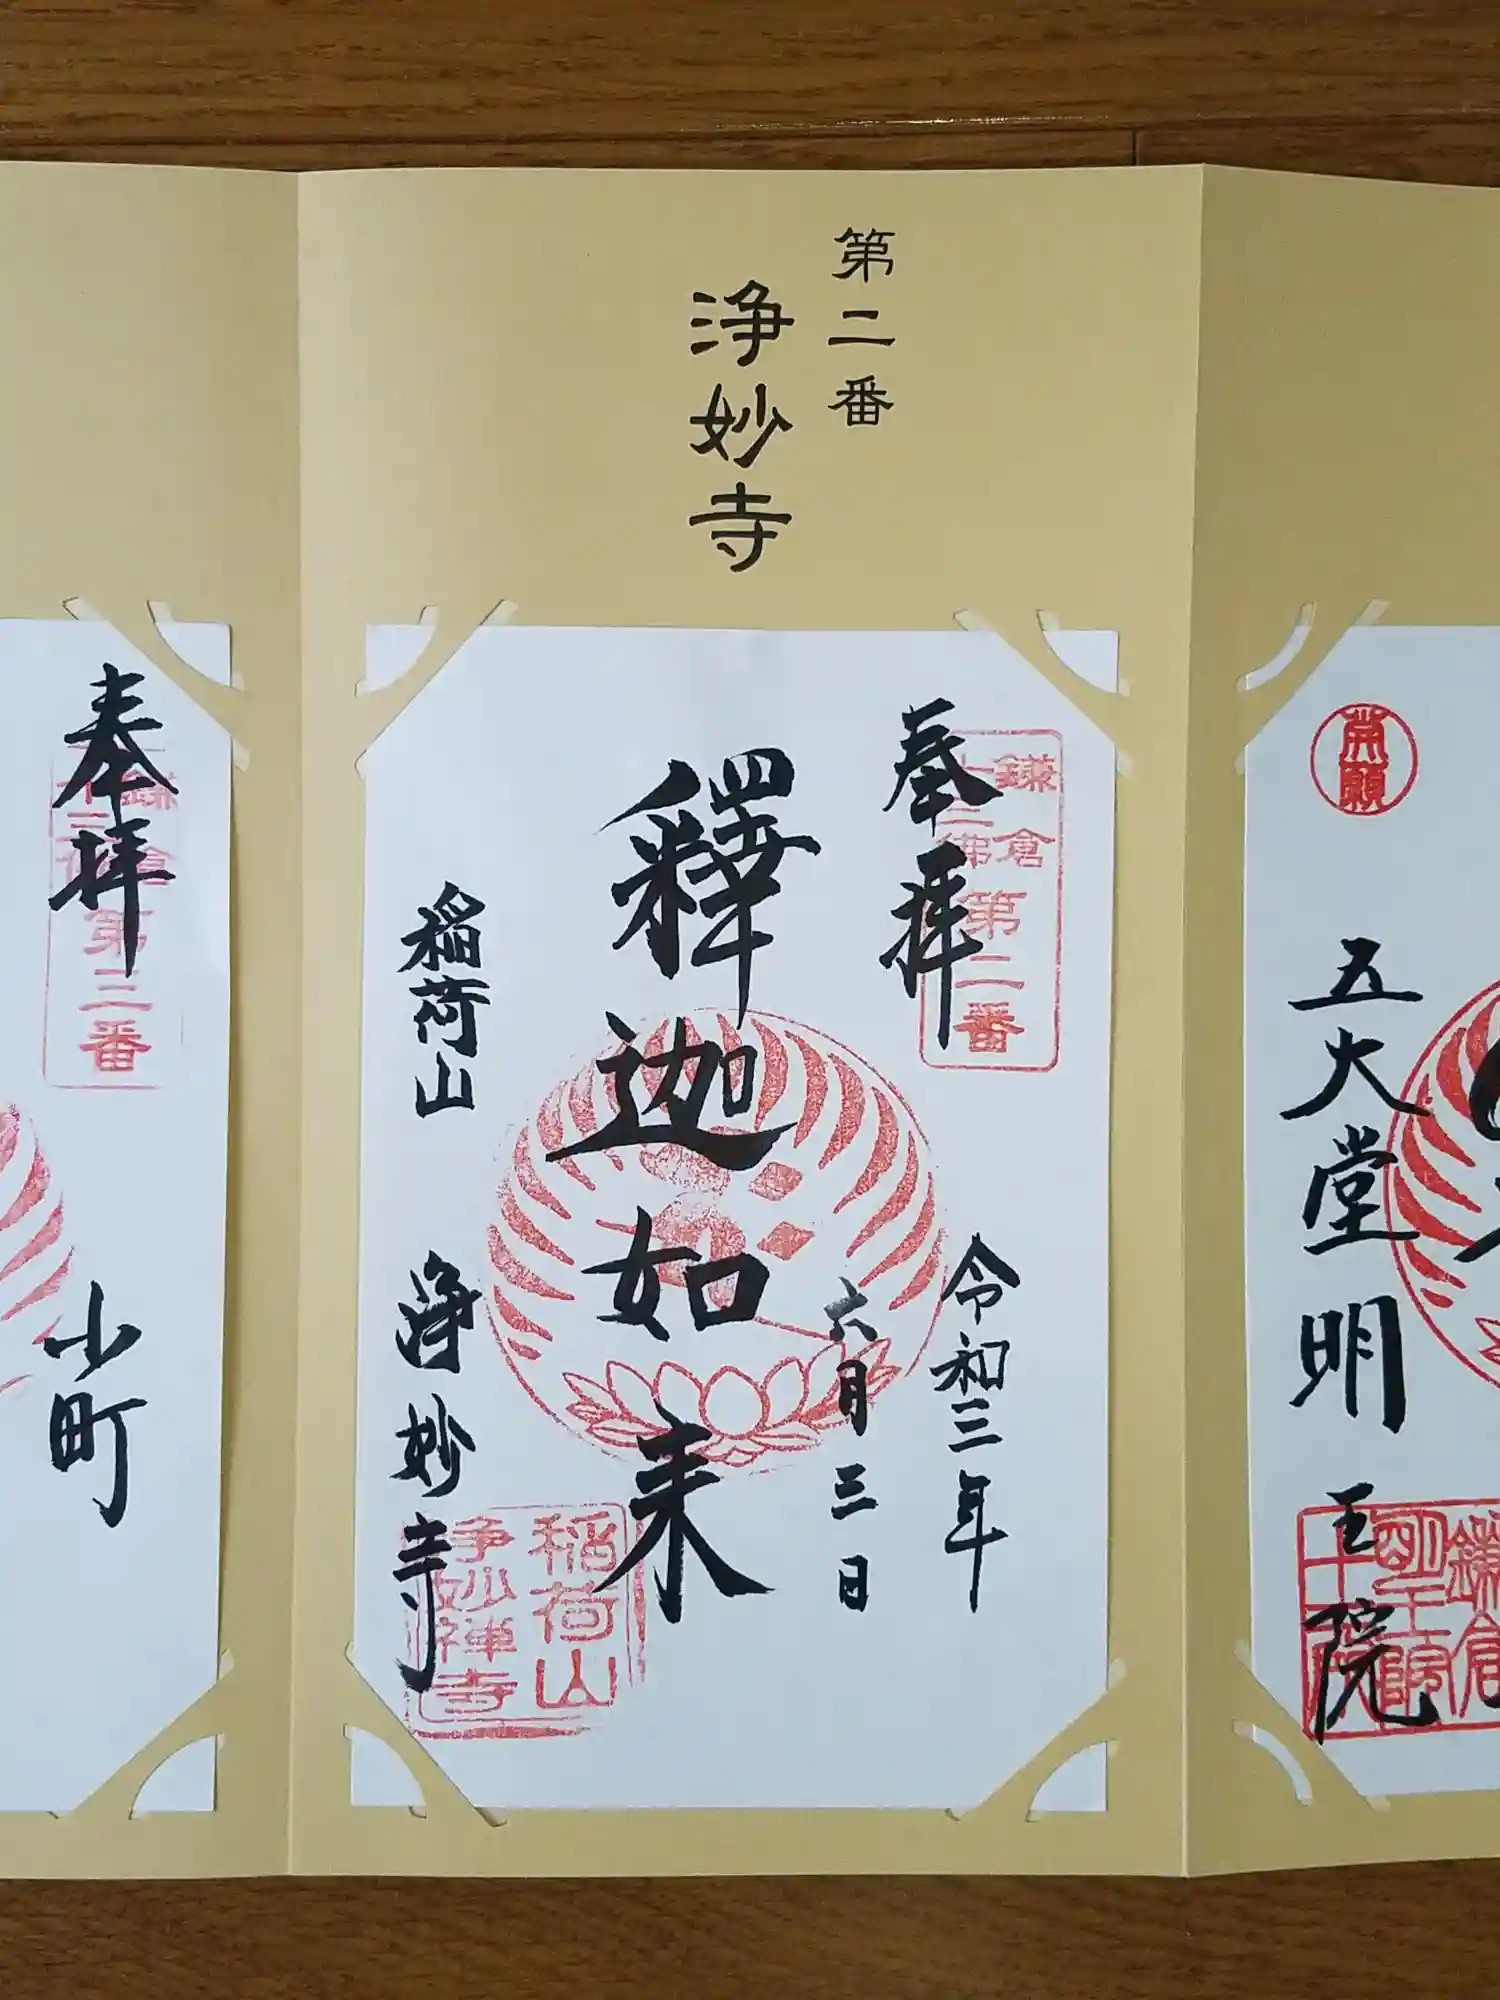 第二番
浄妙寺
開願
五大堂明王院
鎌倉
明王院
奉拝
鎌倉
十三佛
第二番
令和三年
六月三日
釋迦如来
稲荷山
浄妙寺
稲荷山
浄妙禅寺
奉拝
鎌倉
十三佛
第三番
小町